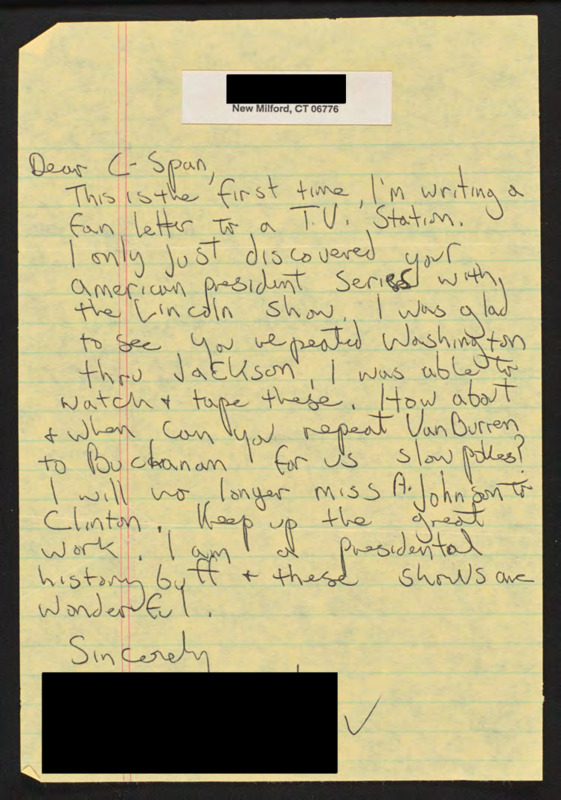 New Milford, CT 06776
Dear C-Span,
This is the first time, I'm writing a
fan letter to a T.V. Station.
I only just discovered your
american president series with
the Lincoln show. I was glad
to see you repeated Washington
thru Jackson, I was able to
watch & tape these. How about
& when can you repeat VanBurren
to Buchanan for us slow pokes?
I will no longer miss A. Johnson to
Clinton. Keep up the great
work. I am a presidental
history buff & these shows are
wonderful.
Sincerely